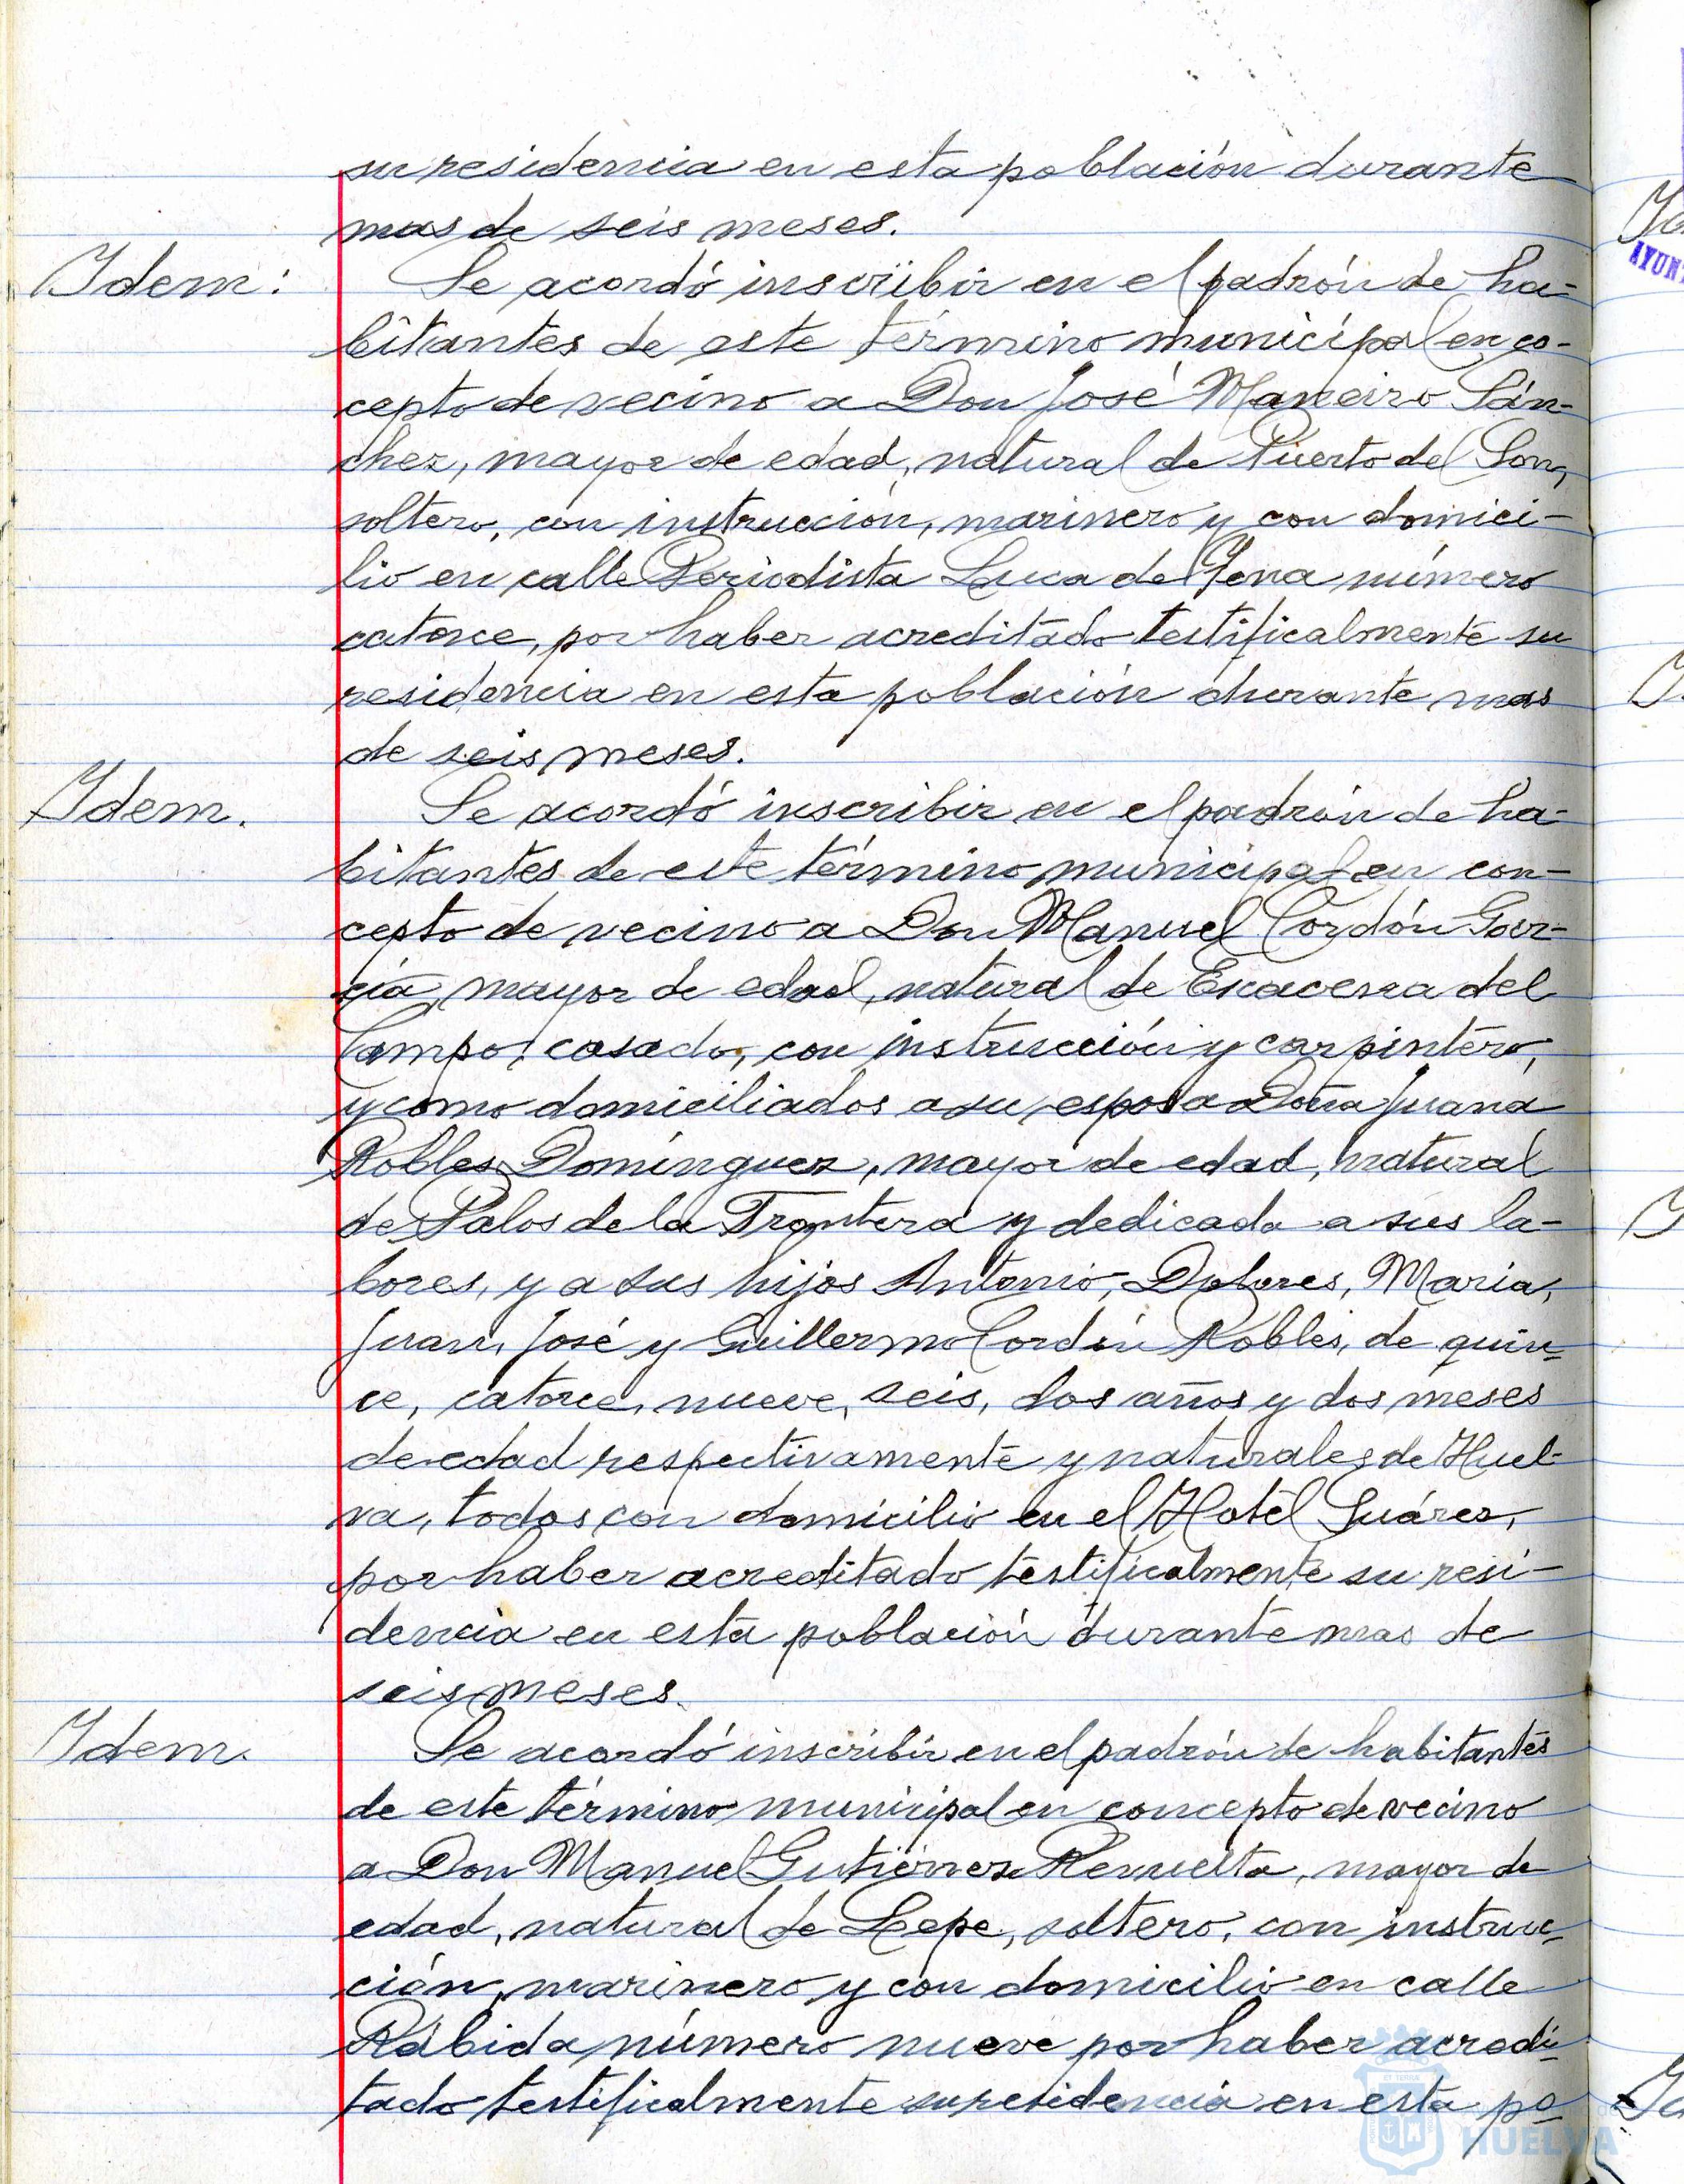 su residencia en esta población durante
mas de seis meses.
Idem: Se acordó inscribir en el padrón de ha-
bitantes de este término municipal en co-
cepto de vecino a Don José Maneiro Sán-
chez, mayor de edad, natural de Puerto del Son,
soltero, con instrucción, marinero y con domici-
lio en calle Periodista Luca de Tena número
catorce, por haber acreditado testificalmente su
residencia en esta población durante mas
de seis meses.
Idem. Se acordó inscribir en el padrón de ha-
bitantes de este término municipal en con-
cepto de vecino a Don Manuel Cordón Gar-
cía, mayor de edad, natural de Escacena del
Campo, casado, con instrucción y carpintero,
y como domiciliados a su esposa Doña Juana
Robles Domínguez, mayor de edad, natural
de Palos de la Frontera y dedicada a sus la-
bores, y a sus hijos Antonio, Dolores, Maria,
Juan, José y Guillermo Cordón Robles, de quin-
ce, catorce, nueve, seis, dos años y dos meses
de edad respectivamente y naturales de Huel-
va, todos con domicilio en el Hotel Suárez,
por haber acreditado testificalmente su resi-
dencia en esta población durante mas de
seis meses.
Idem. Se acordó inscribir en el padrón de habitantes
de este término municipal en concepto de vecino
a Don Manuel Gutiérrez Revuelta, mayor de
edad, natural de Lepe, soltero, con instruc-
ción, marinero y con domicilio en calle
Rábida número nueve por haber acredi-
tado testificalmente su residencia en esta po-
HUELVA